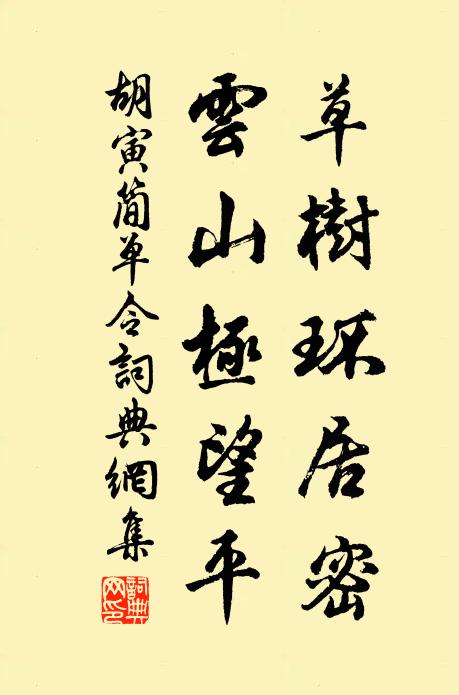 草樹环居密
雲山極望平
胡寅简单令詞典網集
詞典网印